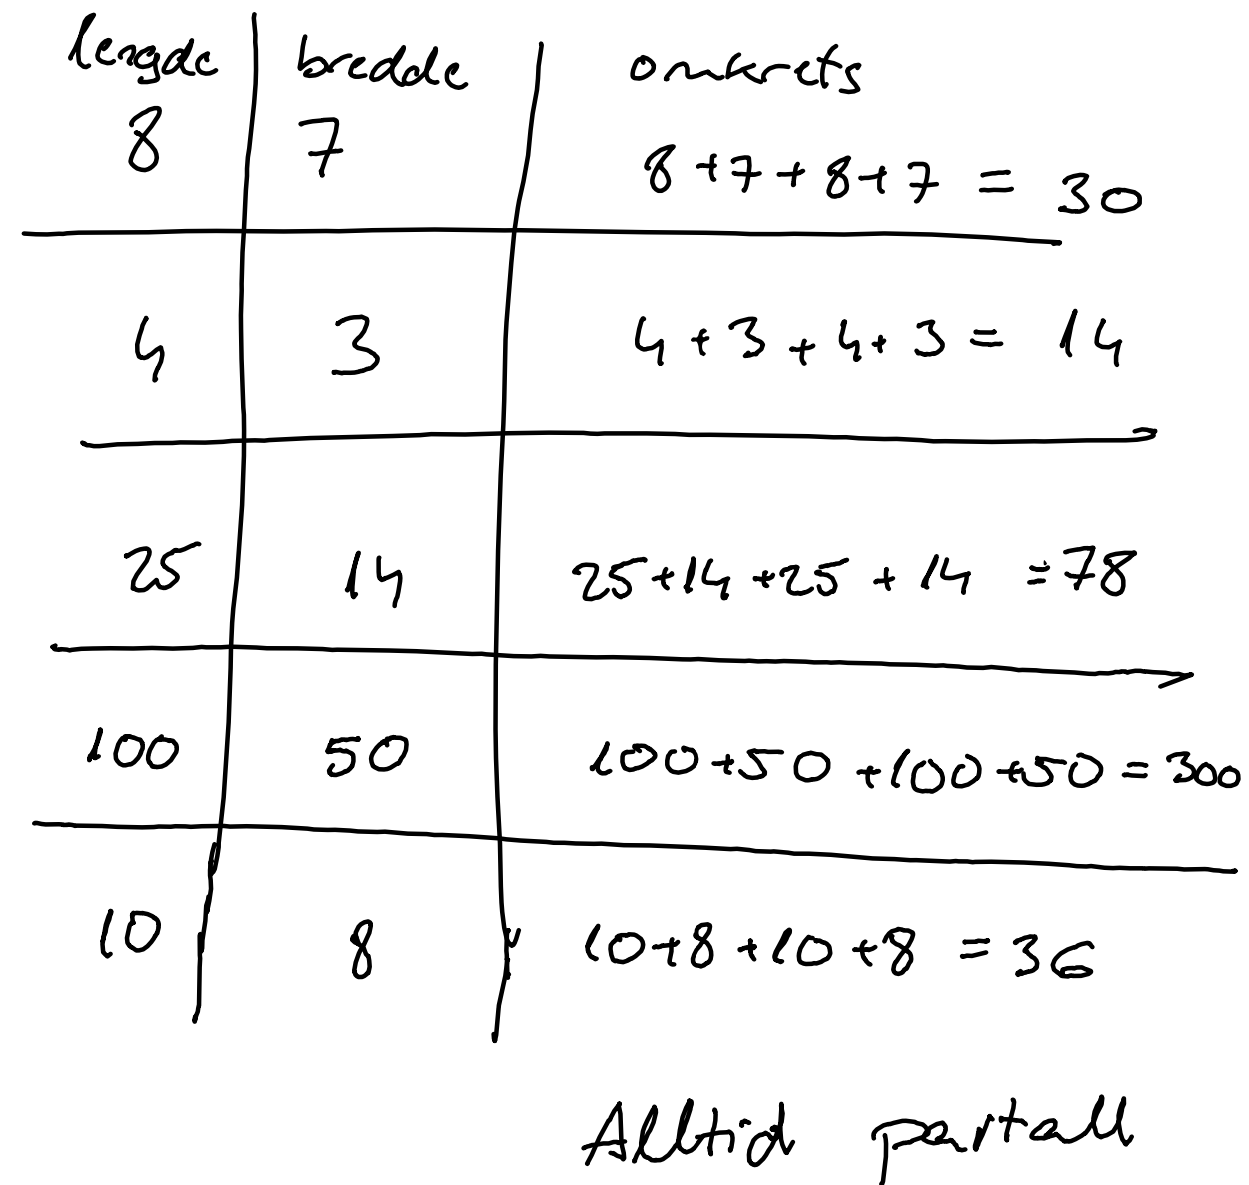 lengde bredde omkrets
8 7 8+7+8+7 = 30
4 3 4+3+4+3 = 14
25 14 25+14+25+14 = 78
100 50 100+50+100+50 = 300
10 8 10+8+10+8 = 36
Alltid partall